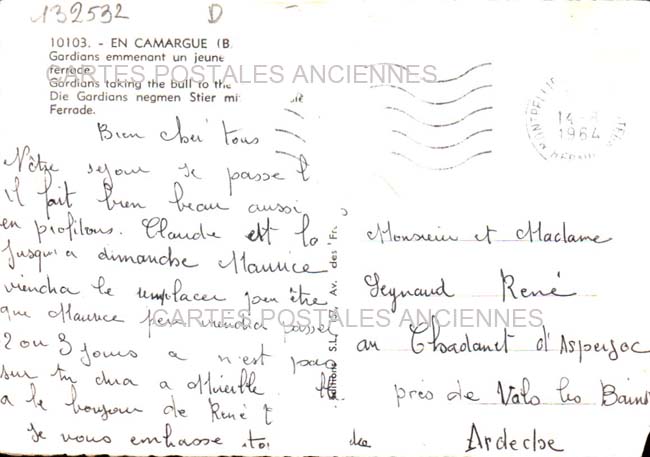 132532 D
10103. - EN CAMARGUE (B
Gardians emmenant un jeune
ferrade
Gardians taking the bull to the
Die Gardians negmen Stier mi
Ferrade.
CARTES POSTALES ANCIENNES
MONTPELLIER
14-8
1964
Bien cher tous
Nôtre sejour se passe
il fait bien beau aussi
en profitons. Claude est la
jusqu'a dimanche Maurice
viendra le remplacer peu être
que Maurice viendra passer
2 ou 3 jours a n'est pas
sur tu dira a Mireille
a le bonjour de René
Je vous embrasse
Editions S.L., 57, Av. des Fr
Monsieur et Madame
Seynaud René
CARTES POSTALES ANCIENNES
au Chadanet d'Asperjoc
près de Vals les Bains
Ardeche